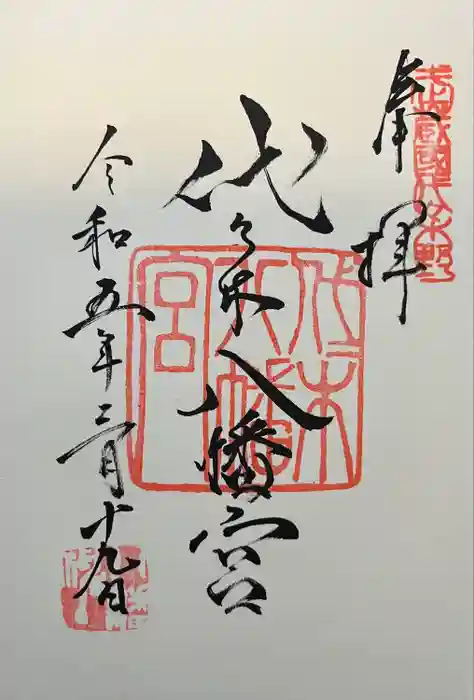 武蔵國代々木野
奉拝
代々木八幡宮
代々木八幡宮
令和五年三月十九日